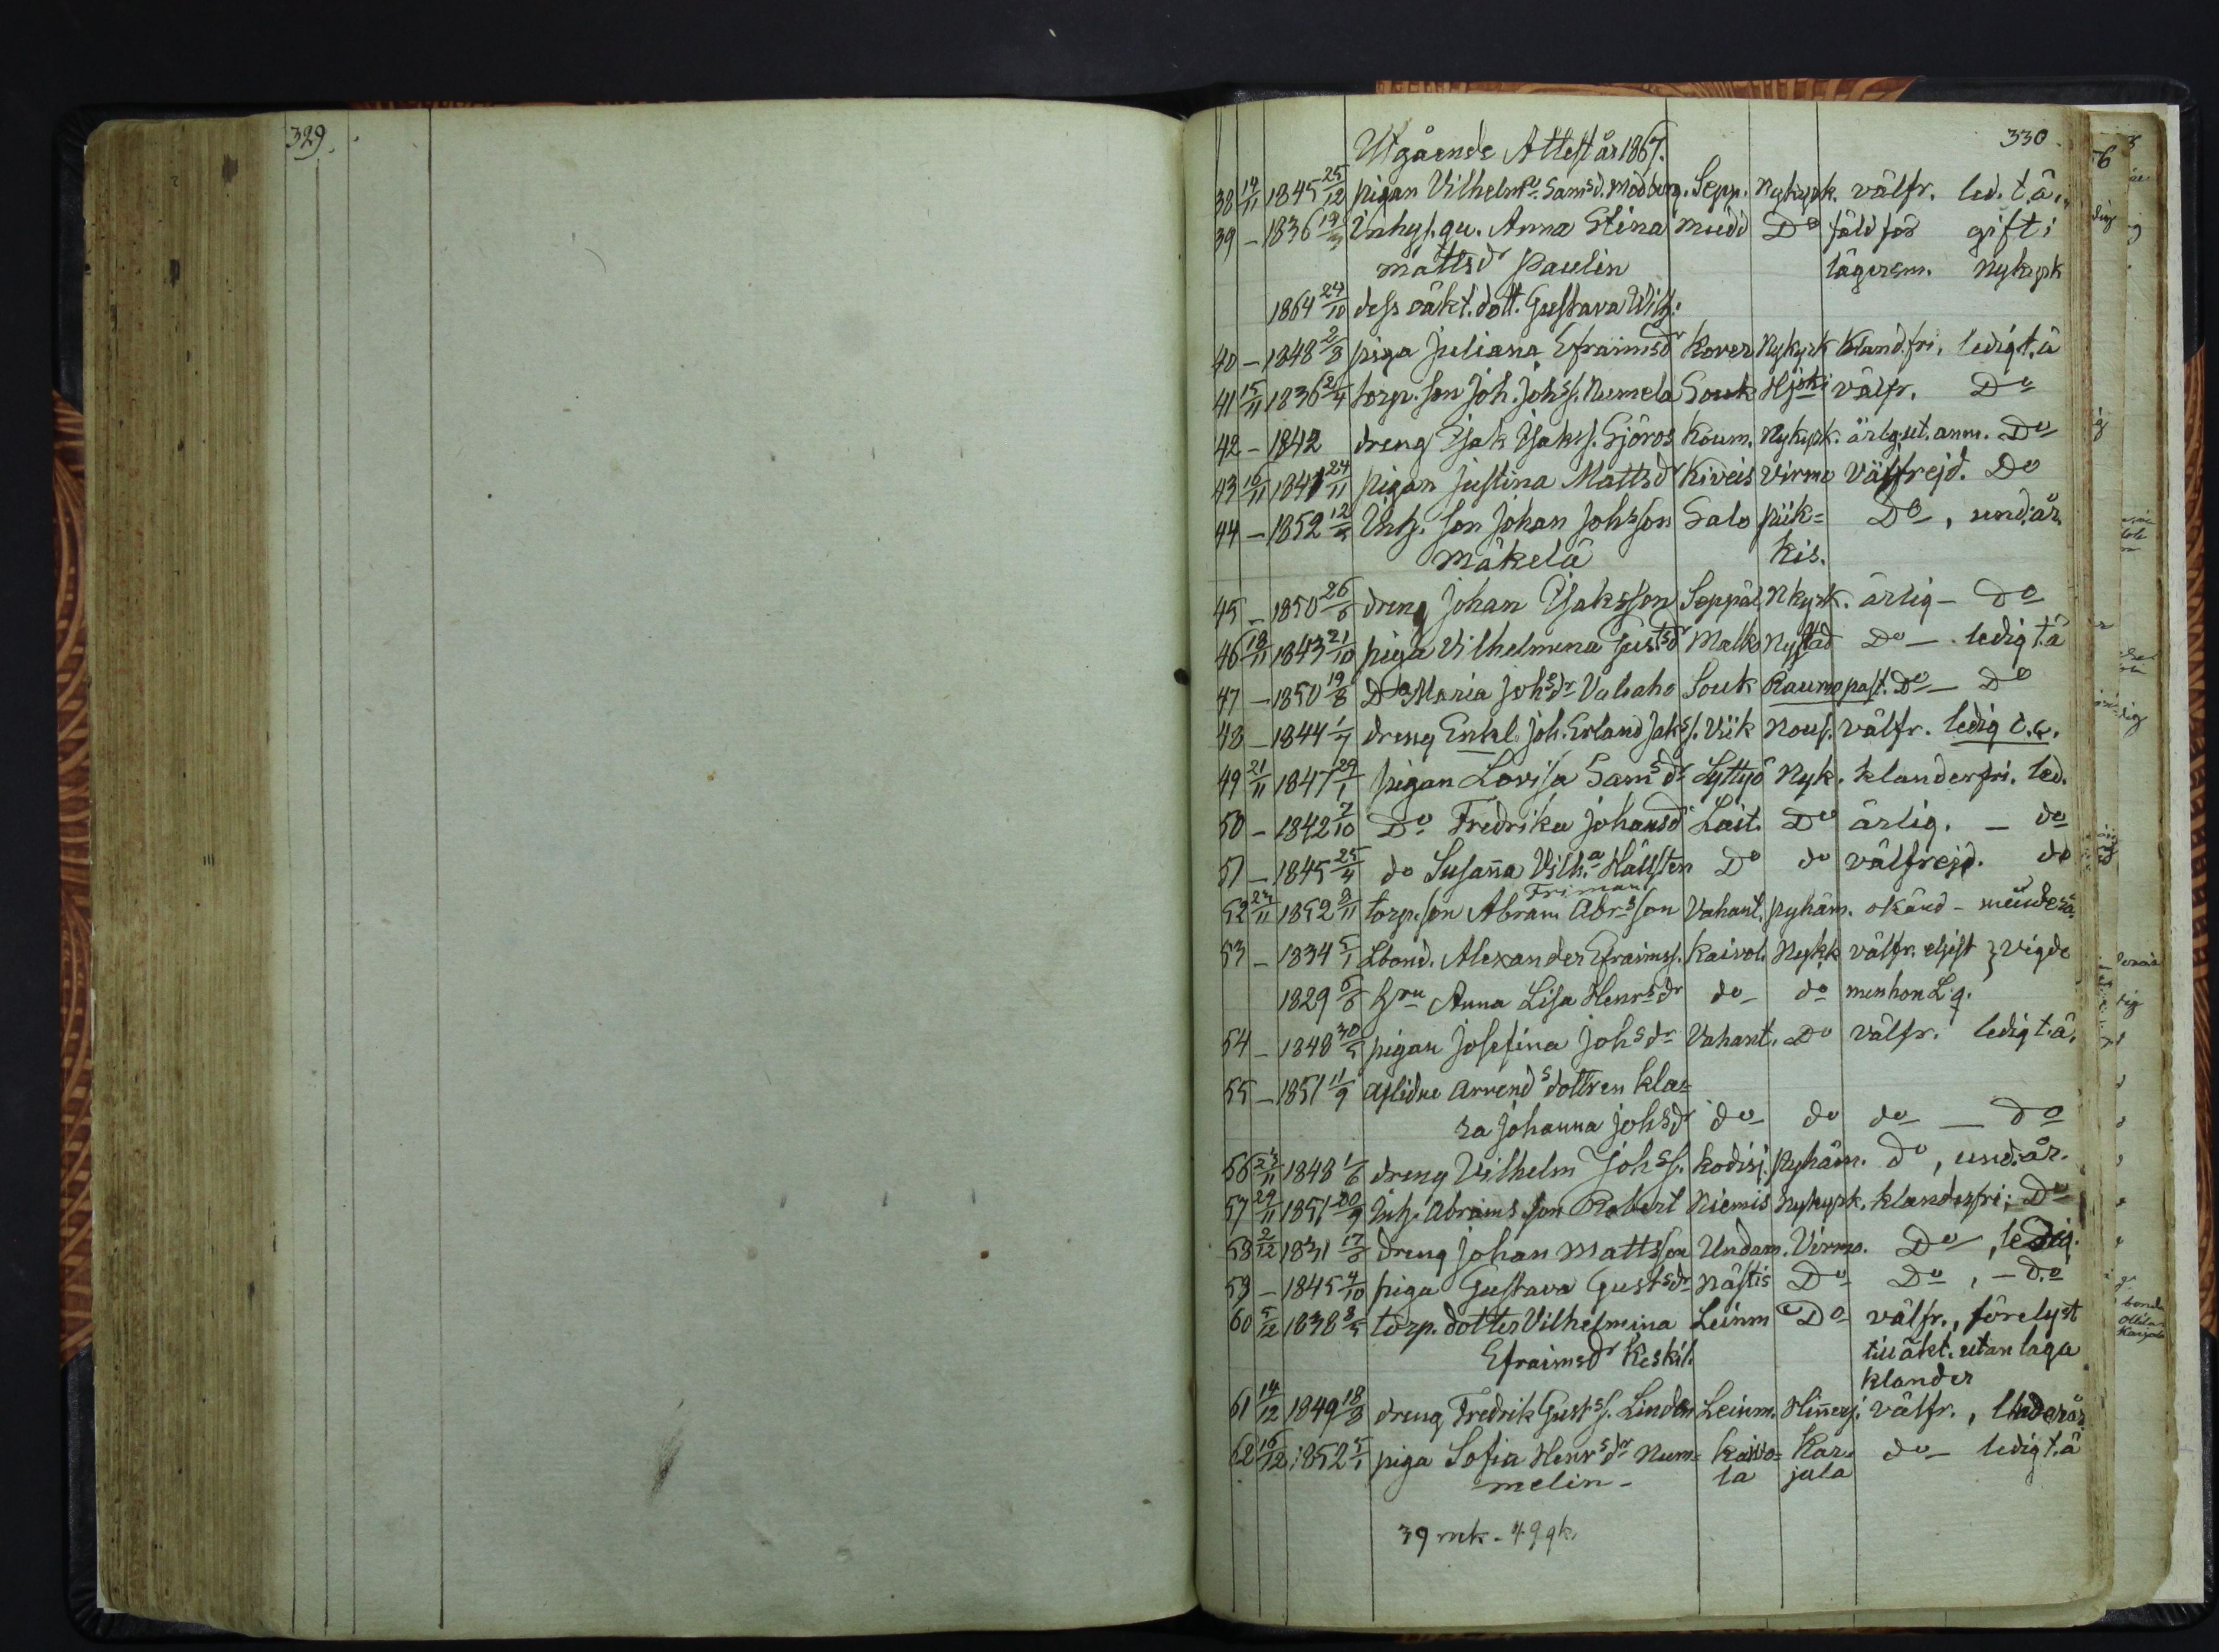 329.
Utgående Attest år 1867.
330.
38 14/11 1845 25/12 pigan Vilhelm:a Sams d. Modberg. Sepp. Nykyrk. välfr. led. t. ä.
39 - 1836 Inhys. qu. Anna Stina Muddi Do fäld för gift i
Mattsdr Paulin lägersm. Nykyrk
1864 24/10 dess oäkt. dott. Gustava Wilh:
40 - 1848 2/8 piga Juliana Efraimsdr Kover Nykyrk Kland.fri, ledig t. ä
41 15/11 1836 2/4 torp. son Joh. Johss. Numela Souk Hjoki välfr. Do
42 - 1842 dreng Isak Isakss. Sjöros Koum. Nykyrk. ärlig, ut. anm. Do
43 16/11 1841 24/11 pigan Justina Mattsdr Kiveis Virmo Välfrejd. Do
44 - 1852 Inh. son Johan Johsson Salo Piik= Do, und. år
Mäkelä kis.
45 - 1850 26/6 dreng Johan Isaksson Seppäl. Nkyrk. ärlig - Do
46 18/11 1843 21/10 piga Vilhelmina Gustsdr Malko Nystad Do - ledig t. ä
47 - 1850 19/8 Do Maria Johsdr Valiaho Souk Raumo past. Do - Do
48 - 1844 1/7 dreng Enkl. Joh. Erland Jaks s. Viik Nous. välfr. ledig
49 21/11 1847 29/1 pigan Lovisa Samsdr Lyttyö Nyk. klanderfri. led.
50 - 1842 7/10 Do Fredrika Johansdr Lait. Do ärlig. - do
51 - 1845 25/4 do Susanna Vilh:a Hällsten Do do välfrejd. do
Friman
52 23/11 1852 8/11 torp. son Abram Abrsson Vahant. Pyhäm. okänd - minderå.
53 - 1834 5/1 Lbond. Alexander Efraimss. Kaivol. Nykk välfr. } vigde
1829 6/6 Hru Anna Lisa Henrsdr do do
54 - 1848 30/5 pigan Josefina Johsdr Vahant. Do välfr. ledig t. ä.
55 - 1851 11/9 aflidne arrends dottren Kla=
ra Johanna Johsdr do do do - do
56 23/11 1848 1/6 dreng Vilhelm Johss. Kodisj. Pyhäm. do, und. år.
57 29/11 1851 20/9 Inh. Abrams son Robert Niemis Nykyrk. klanderfri; Do
58 2/12 1831 17/8 dreng Johan Mattsson Undam. Virmo. Do, ledig.
59 - 1845 4/10 piga Gustava Gustsdr Nästis Do Do, - do
60 5/12 1838 8/5 torp. dotter Vilhelmina Leinm Do välfr., förelyst
Efraimsdr Keskit. till äkt. utan laga
klander
61 14/12 1849 18/8 dreng Fredrik Gustss. Linden Leinm. Hinnerj. välfr., Under år
62 16/12 1852 5/1 piga Sofia Henrsdr Num= Kaivo= Kar= do - ledig t. ä
melin - la jala
39 mk. 49 qk.